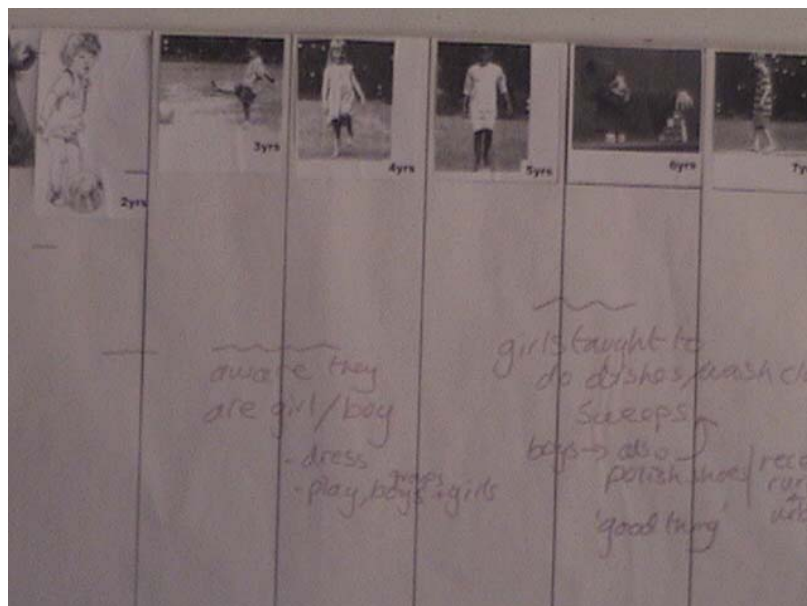 2yrs
3yrs
4yrs
5yrs
6yrs
7y
aware they
are girl/boy
- dress
groups
- play, boys + girls
girls taught to
do dishes, wash cl
sweeps
boys → also
polish shoes
'good thing'